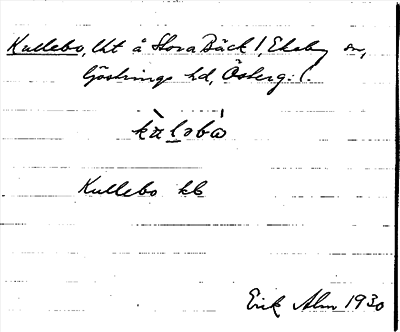 Kullebo, lht å Stora Däck 1, Ekeby sn,
Göstrings hd, Österg. l.
kùləbó
Kullebo kb
Erik Alm 1930